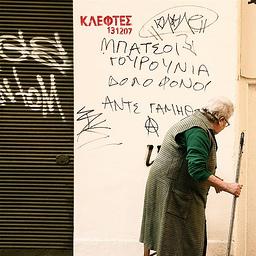 ΚΛΕΦΤΕΣ
131207
ΜΠΑΤΣΟΙ
ΓΟΥΡΟΥΝΙΑ
ΔΟΛΟΦΟΝΟΙ
ΑΝΤΕ ΓΑΜΗΘ